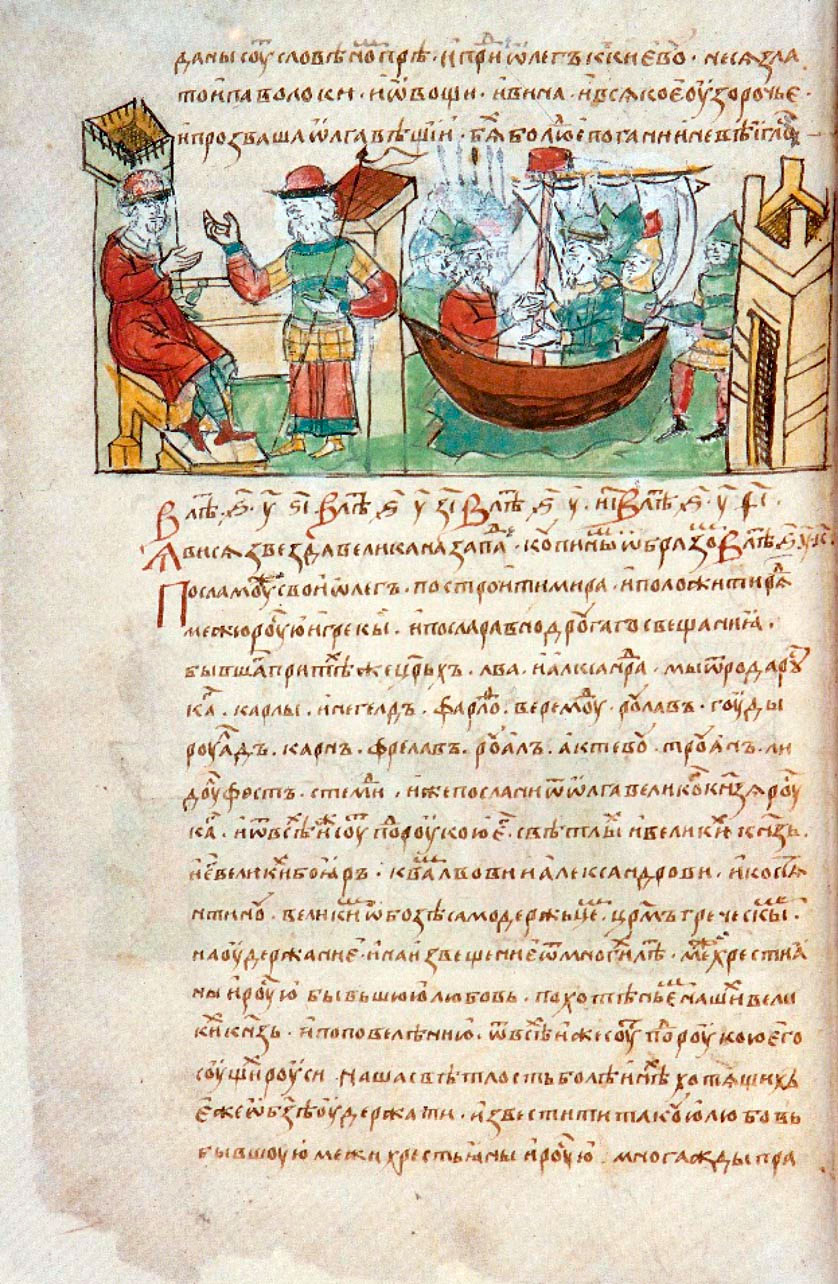 даны соуⷮ словѣномⷨ прѣⷤ · и приⷣ ѡлегъ к киевоу · неся зла
то и паволоки · и ѡвощи · и вина · и всякое оузорочье ·
и прозваша ѡлга вѣщїи · бяⷯ бо люⷣе погани и невѣигл҃о
В лѣⷮ · ҂ѕ҃ · у҃ · ѕі҃ В лѣⷮ ҂ѕ҃ · у҃ зі҃ В лѣⷮ · ҂ѕ҃ · у҃ · иі҃ В лѣⷮ ҂ѕ҃ · у҃ · ѳі҃ ·
Явися звезда велика на западⷣ · копиинымⷨ ѡбразоⷨ В лѣⷮ ҂ѕ҃ · у҃ · к҃ ·
Посла моуⷤ свои ѡлегъ · построити мира · и положити ряⷣ
межю роуⷭю и грекы · и посла равно дроугаго свещаниꙗ ·
бывшаⷢ при тѣⷯже цр҃ьхъ · лва · и алкⷭаанⷣра · мы ѿ рода роуⷭ
каⷢ · карлы · инегелдъ · фарлоⷴ · веремоуⷣ · роулавъ · гоуды
роуалⷣъ · карнъ · фрелавъ · роуалъ · актевоу · троуанъ · ли
доуⷧ фостъ · стемиⷣ · иже послани ѿ ѡлга великоⷢ кнꙗзя роуⷭ
каⷢ · и ѿ всѣⷯ иⷤ соуⷮ поⷣ роукою еⷢ · свѣтлыⷯ и великиⷯ кнꙗзь ·
и еⷢ великиⷯ боꙗръ · к ваⷨ лвови и александрови · и костꙗ
нтиноу · великиⷨ ѡ бозѣ самодержьцеⷨ · црⷭмъ греческыⷨ ·
на оудержание · и на извещение ѿ многиⷯ лѣⷮ · меⷤ хрестиа
ны и роуⷭю бывьшюю любовь · похотѣньеⷨ нашиⷯ вели
киⷯ кнꙗзь · и по повелѣнию · ѿ всѣⷯ иже соуⷮ поⷣ роукою его
соущиⷯ роуси наша свѣтлость болѣ инѣⷯ хотящихъ
еже ѡ бз҃ѣ оудержати · и звестити такоую любовь
бывшоую межи хрестьꙗны и роуⷭю · многажды пра